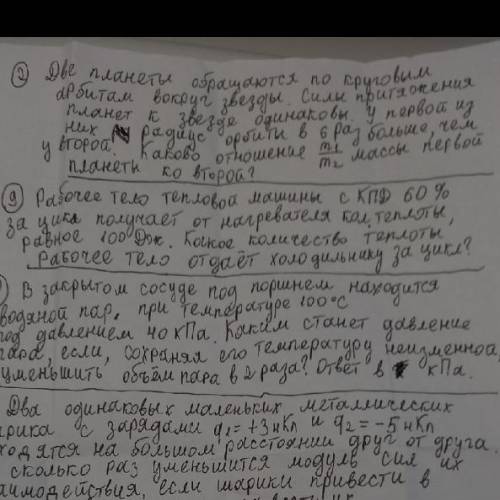 ② Две планеты обращаются по круговым
арбитам вокруг звезды. Силы притяжения
планет к звезде одинаковы. У первой из
них радиус орбиты в 6 раз больше, чем
у второй. Каково отношение m1/m2 массы первой
планеты ко второй?
⑨ Рабочее тело тепловой машины с КПД 60%
за цикл получает от нагревателя кол. теплоты,
равное 100 Дж. Какое количество теплоты
рабочее тело отдаёт холодильнику за цикл?
) В закрытом сосуде под поршнем находится
водяной пар, при температуре 100°С
под давлением 40 кПа. Каким станет давление
пара, если, сохраняя его температуру неизменной,
уменьшить объём пара в 2 раза? Ответ в кПа.
Два одинаковых маленьких металлических
арика с зарядами q1=+3нКл и q2=-5нКл
ходятся на большом расстоянии друг от друга.
сколько раз уменьшится модуль сил их
аимодействия, если шарики привести в